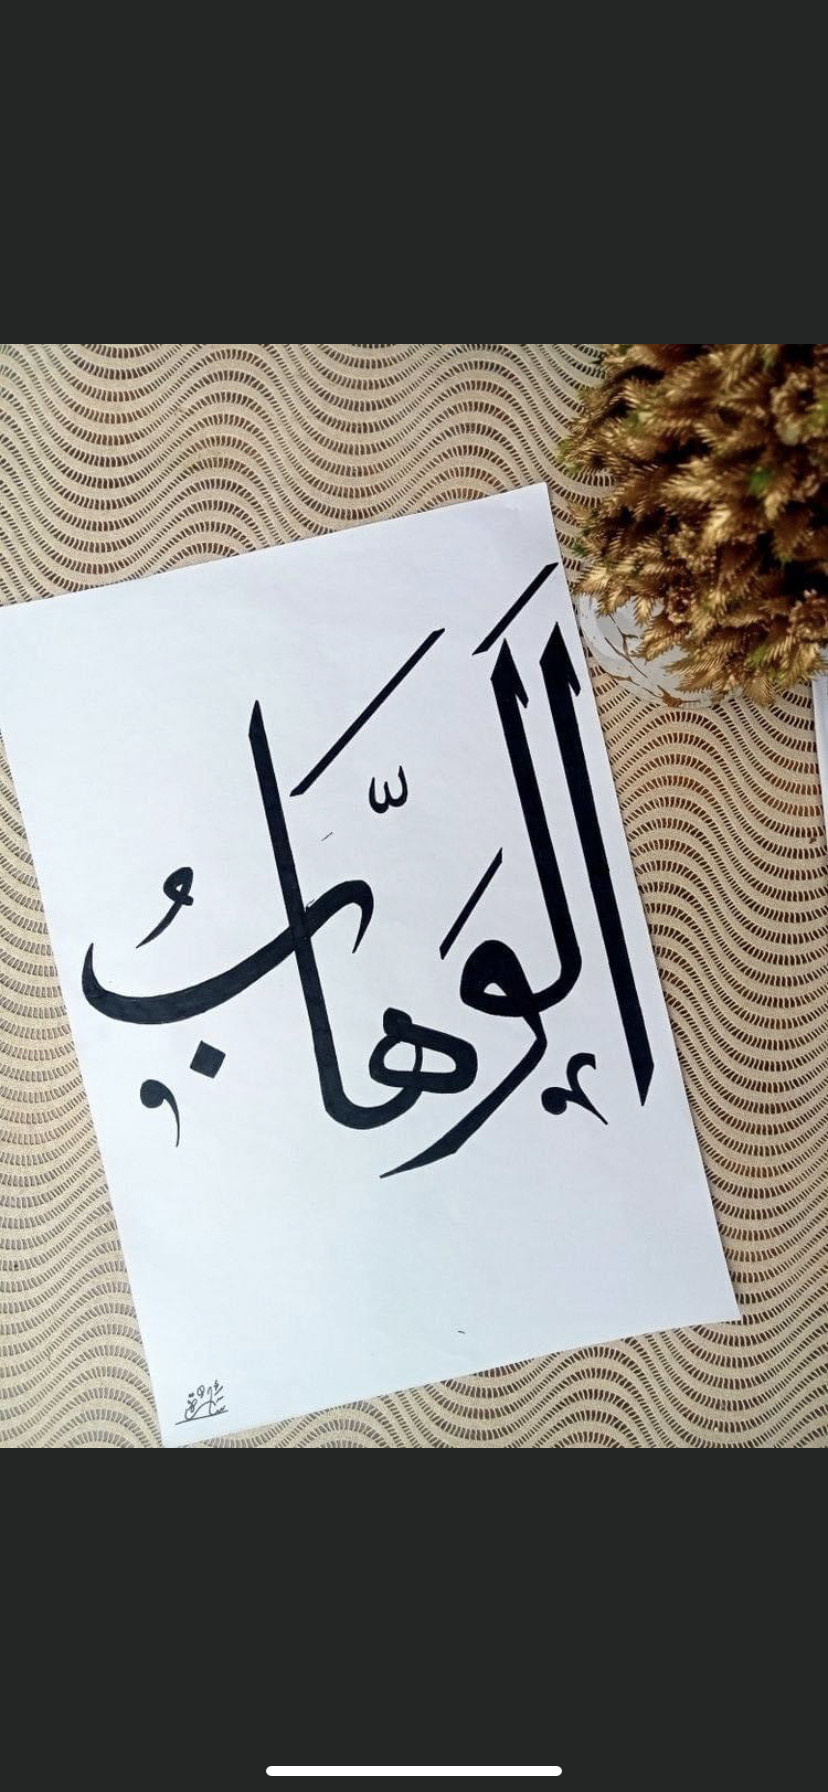 الْوَهَّابُ